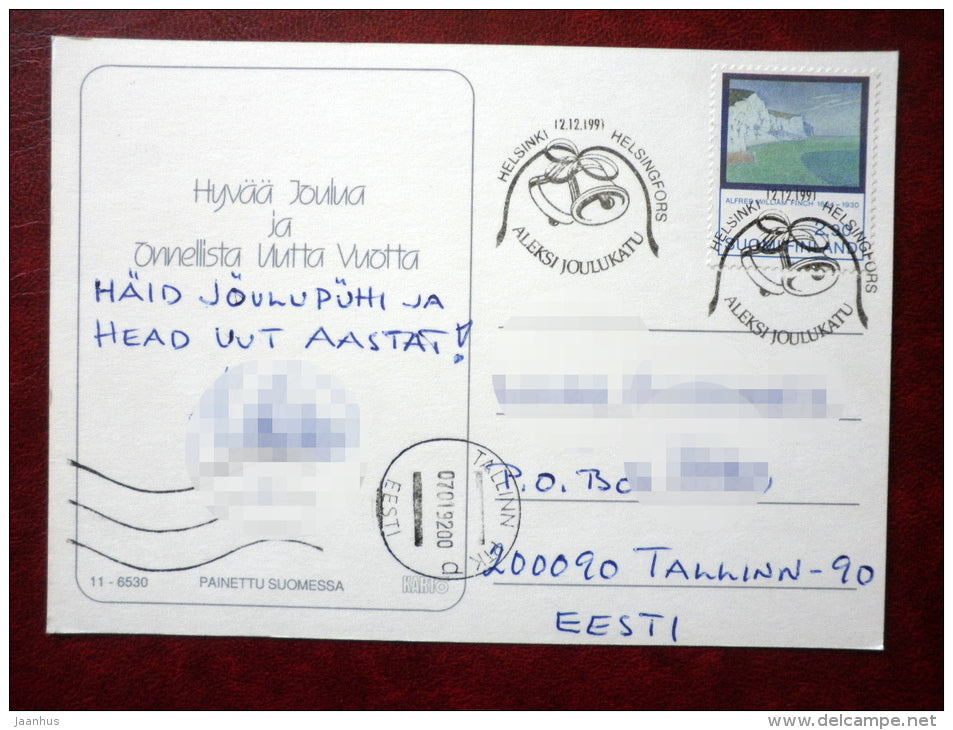 Hyvää Joulua
ja
Onnellista Uutta Vuotta
HÄID JÕULUPÜHI JA
HEAD UUT AASTAT!
11 - 6530 PAINETTU SUOMESSA KARTO
HELSINKI 12.12.1991 HELSINGFORS
ALEKSI JOULUKATU
ALFRED WILLIAM FINCH 1930
2,90
SUOMI FINLAND
HELSINKI 12.12.1991 HELSINGFORS
ALEKSI JOULUKATU
TALLINN
07019200
EESTI
d
P.O.
200090 TALLINN-90
EESTI
Jaanhus
www.delcampe.net